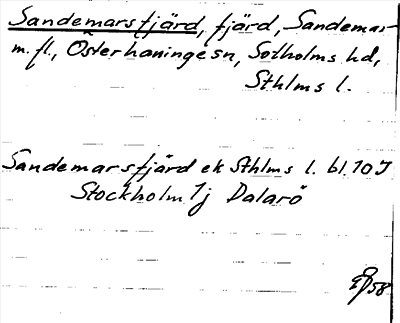 Sandemarsfjärd, fjärd, Sandemar
m. fl., Österhaninge sn, Sotholms hd,
Sthlms l.
Sandemarsfjärd ek Sthlms l. bl. 10J
Stockholm Ij Dalarö
58